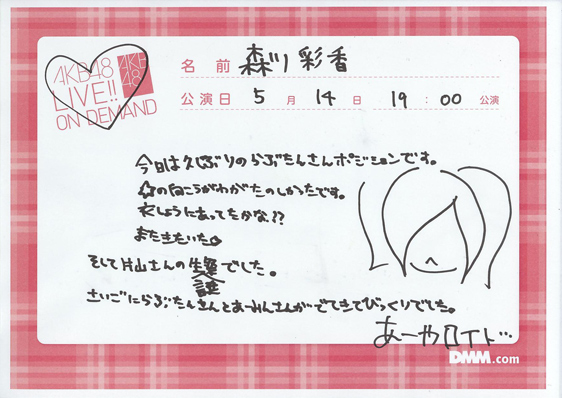 AKB48
LIVE!!
ON DEMAND
AKB
48
名前 森川彩香
公演日 5月14日 19:00公演
今日は久しぶりのらぶたんさんポジションです。
☆の向こうがわがたのしかったです。
衣しょうにあってたかな!?
またきたいた☆
そして片山さんの生誕でした。
さいごにらぶたんさんとあーみんさんがでてきてびっくりでした。
あーやロイド…
DMM.com